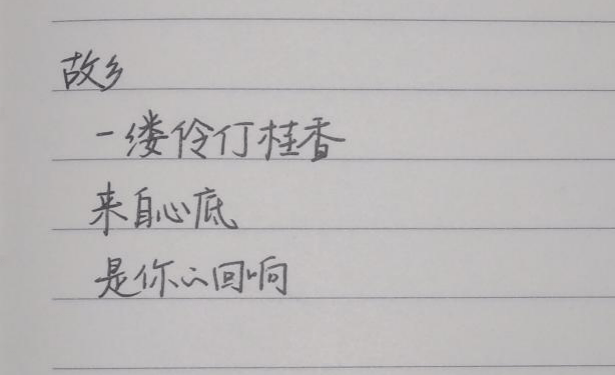 故乡
一缕伶仃桂香
来自心底
是你心回响